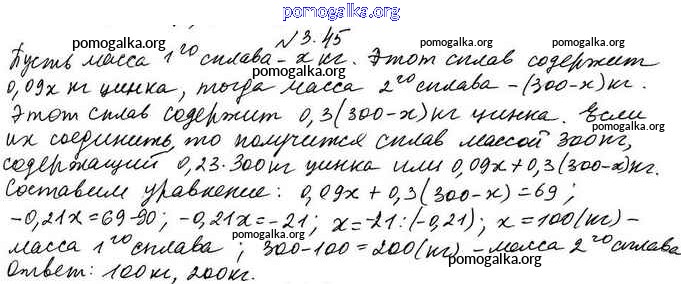 pomogalka.org
№3.45
pomogalka.org pomogalka.org
Пусть масса 1го сплава – x кг. Этот сплав содержит
0,09x кг цинка, тогда масса 2го сплава – (300-x) кг.
pomogalka.org
Этот сплав содержит 0,3(300-x) кг цинка. Если
pomogalka.org pomogalka.org
их соединить, то получится сплав массой 300кг,
содержащий 0,23·300кг цинка или 0,09x+0,3(300-x)кг.
pomogalka.org
Составим уравнение: 0,09x+0,3(300-x)=69;
pomogalka.org
-0,21x=69-90; -0,21x=-21; x=-21:(-0,21); x=100(кг) –
pomogalka.org
масса 1го сплава; 300-100=200(кг) – масса 2го сплава
pomogalka.org pomogalka.org
Ответ: 100кг, 200кг.